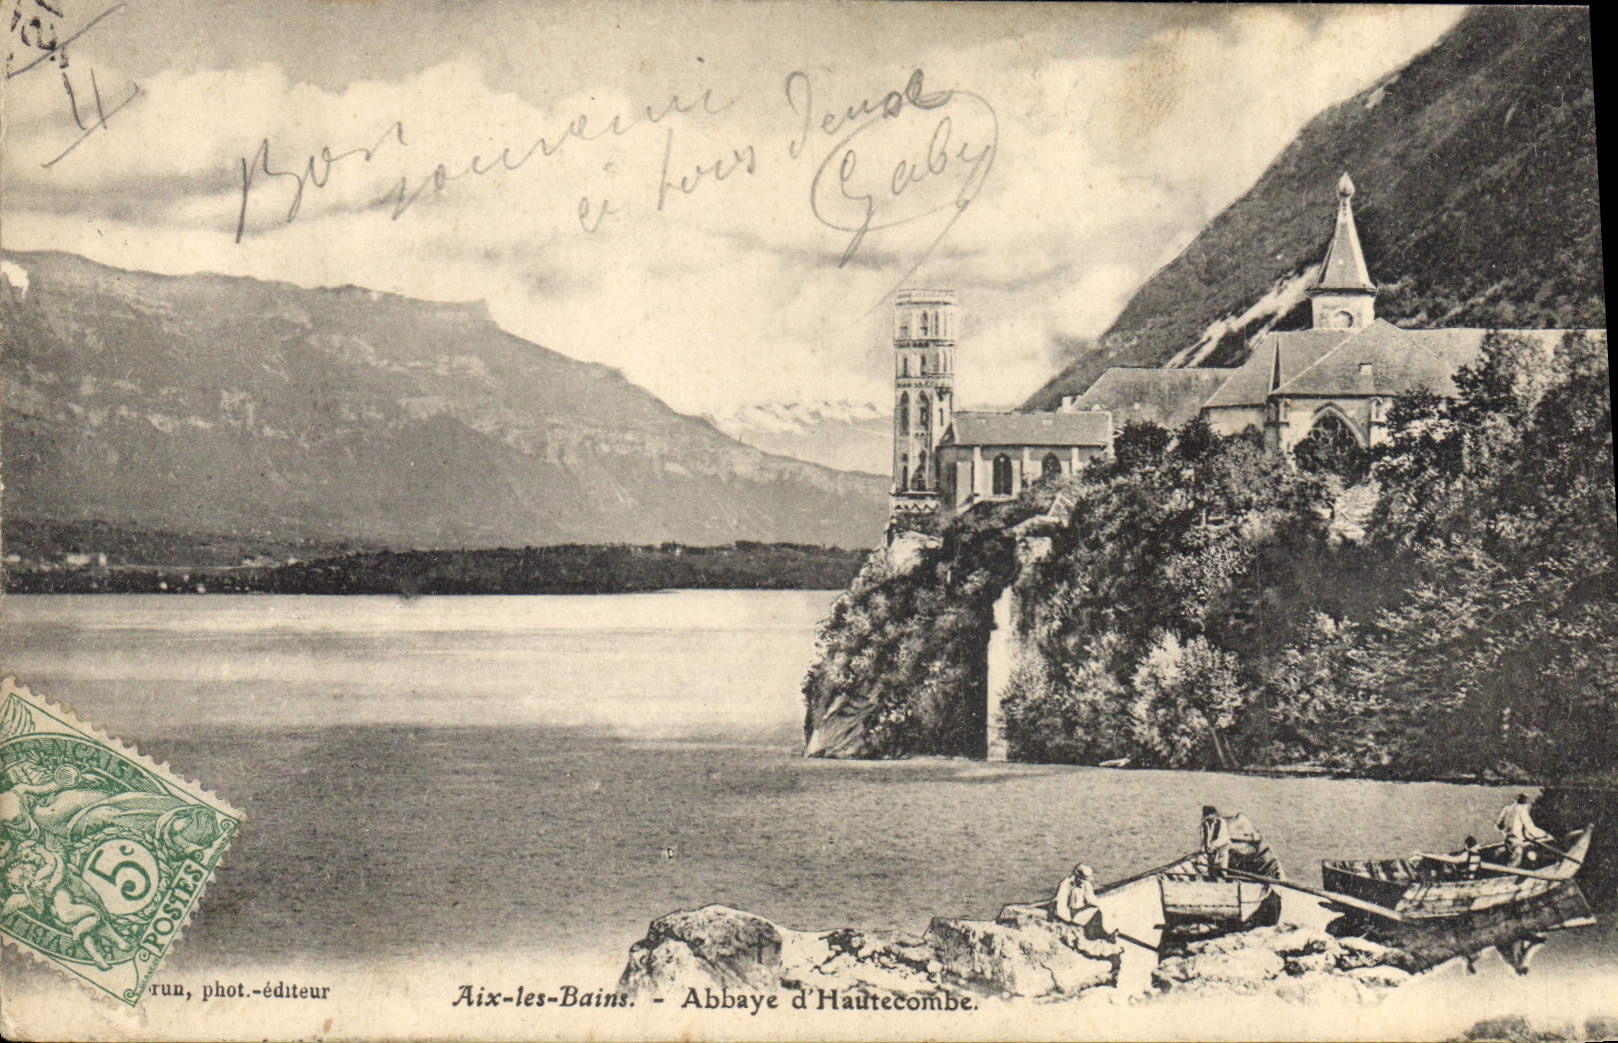 Bon
à tous deux
Gaby
FRANÇAISE
5c
POSTES
run, phot.-éditeur
Aix-les-Bains. - Abbaye d'Hautecombe.